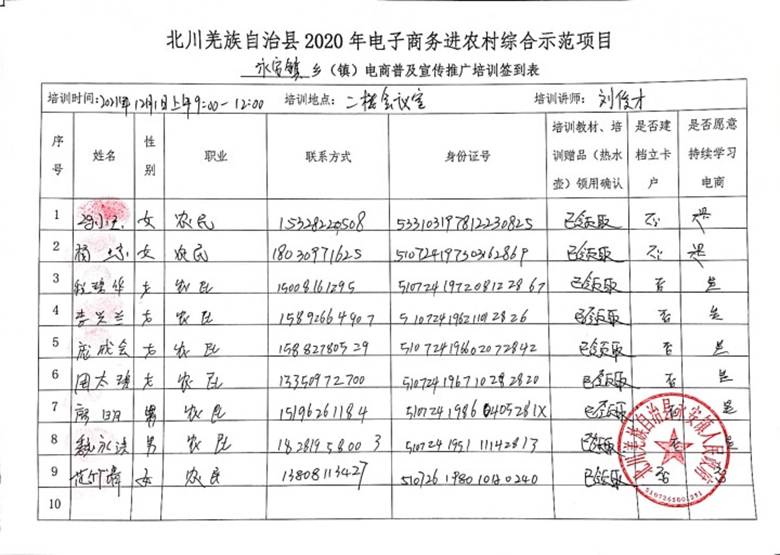 北川羌族自治县2020年电子商务进农村综合示范项目
永安镇 乡（镇）电商普及宣传推广培训签到表
培训时间：2021年12月1日上午9:00-12:00 培训地点：二楼会议室 培训讲师：刘俊才
序号 姓名 性别 职业 联系方式 身份证号 培训教材、培训赠品（热水壶）领用确认 是否建档立卡户 是否愿意持续学习电商
1 女 农民 已领取 否 是
2 女 农民 18030971625 510724197303162869 已领取 否 是
3 女 农民 15008161295 510724197208122867 已领取 否 是
4 李兴兰 女 农民 15892664907 已领取 否 是
5 庞成会 女 农民 15882780529 510724196602072842 已领取 否 是
6 周太 女 农民 13350972700 510724196710282820 已领取 否 是
7 男 农民 15196261184 51072419860405281X 已领取 否 是
8 魏永洪 男 农民 18281958003 510724195111142813 已领取 否 是
9 女 农民 13808113427 510726198010180240 已领取 否
10
北川羌族自治县永安镇人民政府